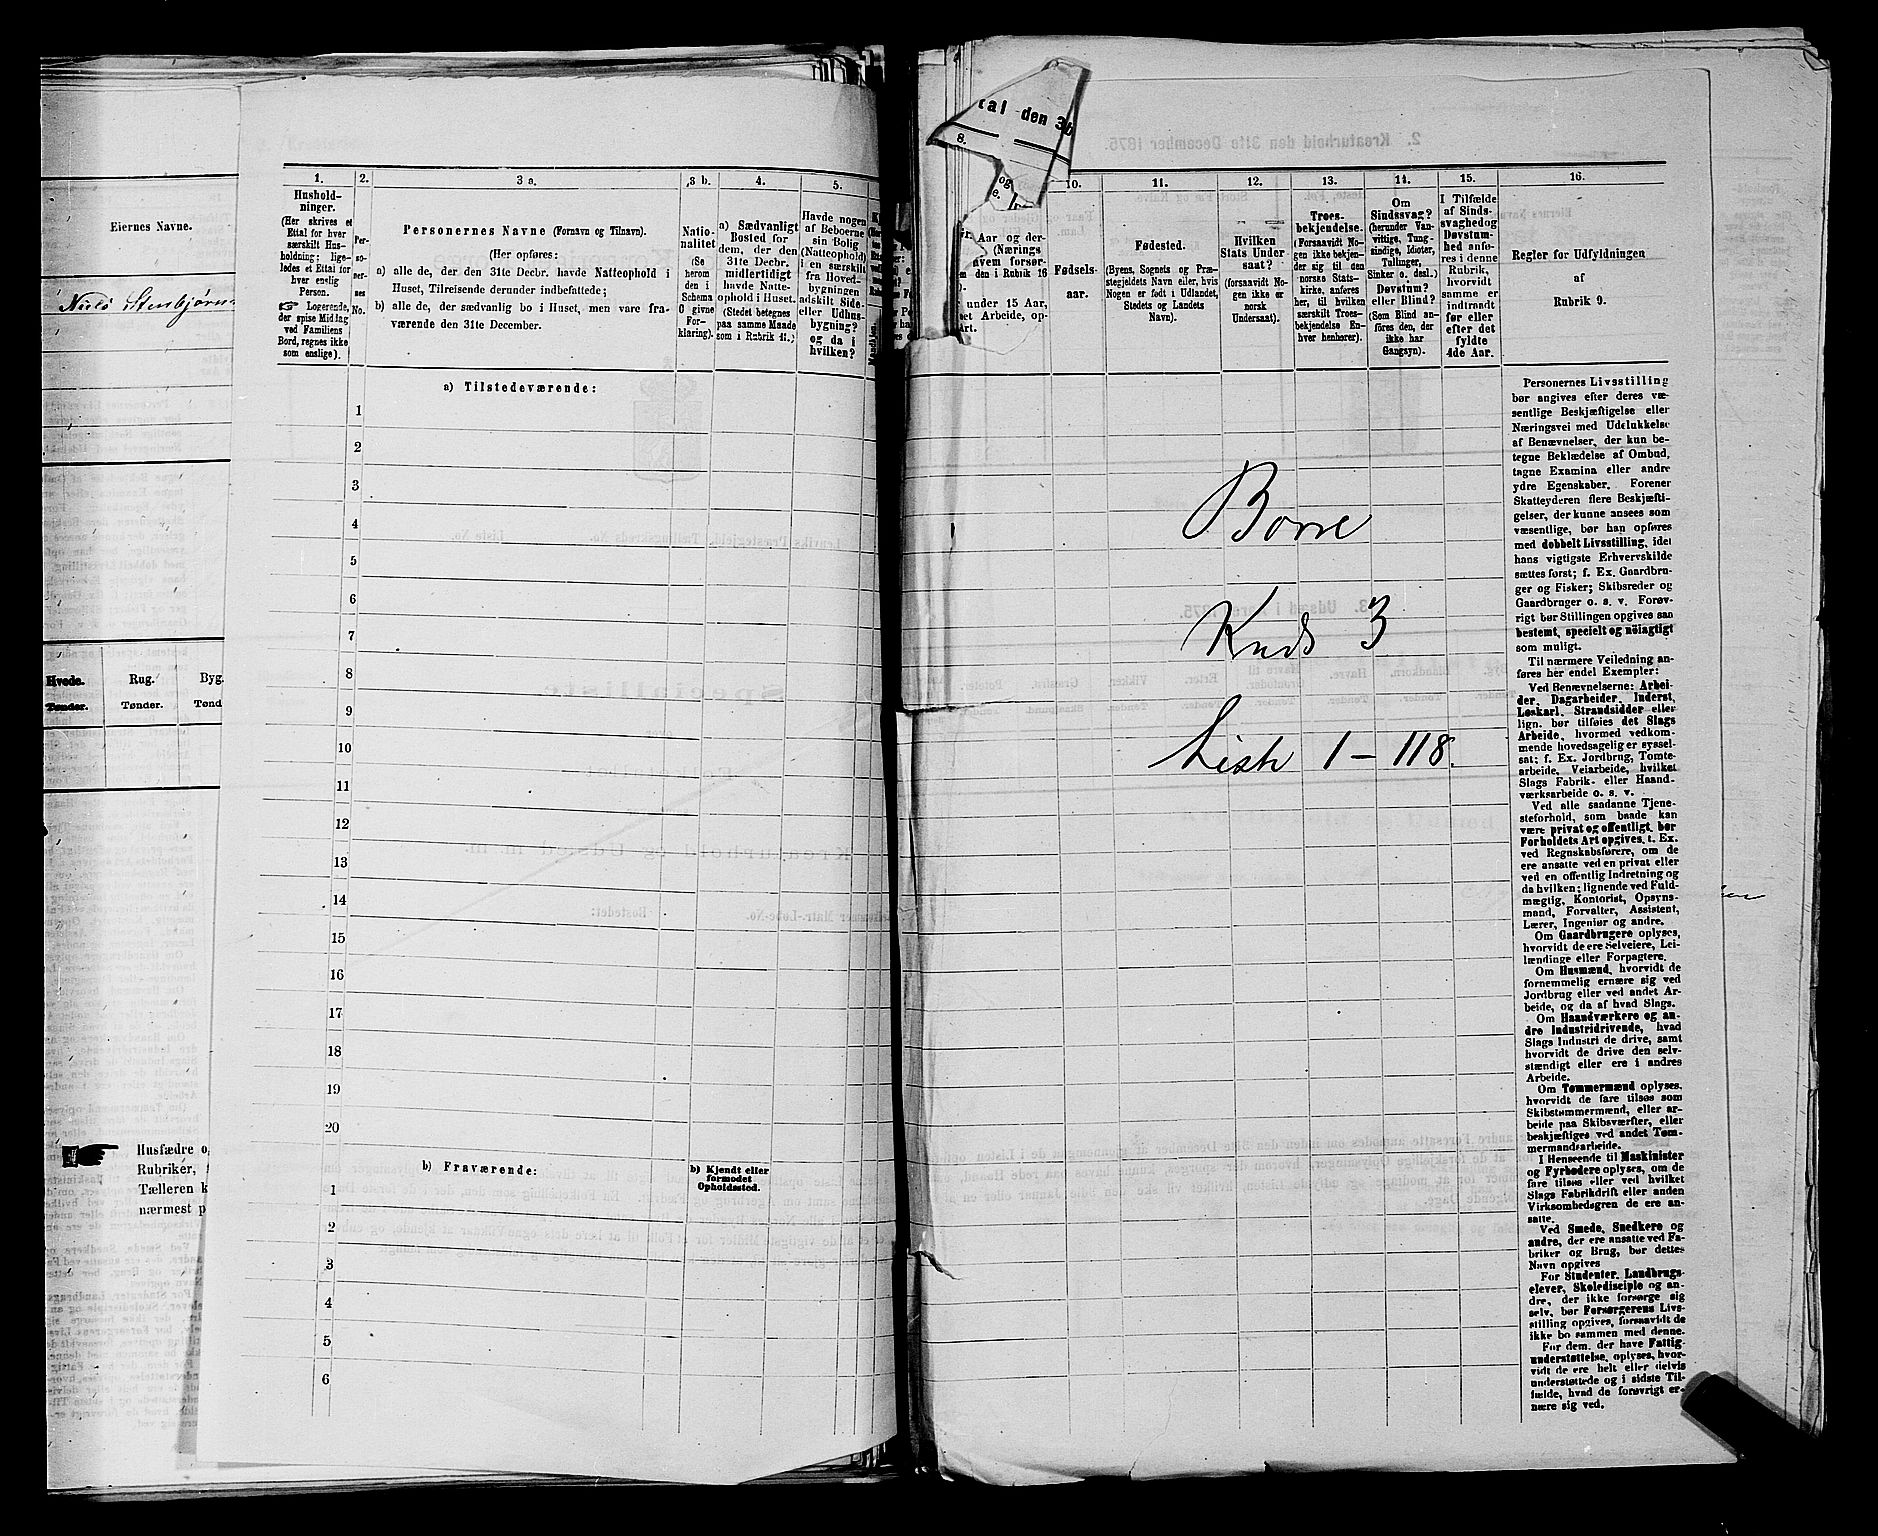 Eiernes Navne.
Niels Stenbjørns
Hvede.
Rug.
Byg.
Tønder.
Tønder.
Tønd
Husfædre o
Rubriker, f
Tælleren k
nærmest p
1.
Hushold-
ninger.
(Her skrives et
Ettal for hver
særskilt Hus-
holdning; lige-
ledes et Ettal for
hver enslig
Person.
Logerende,
der spise Middag
ved Familiens
Bord, regnes ikke
som enslige).
2.
Per-
so-
ner-
nes
No.
3 a.
Personernes Navne (Fornavn og Tilnavn).
(Her opføres:
a) alle de, der den 31te Decbr. havde Natteophold i
Huset, Tilreisende derunder indbefattede;
b) alle de, der sædvanlig bo i Huset, men vare fra-
værende den 31te December.
3 b.
Natio-
nalitet
(Se
herom
den i
Schema
O givne
For-
klaring).
4.
a) Sædvanligt
Bosted for
dem, der den
31te Decbr.
midlertidigt
havde Natte-
ophold i Huset.
(Stedet betegnes
paa samme Maade
som i Rubrik 11.)
5.
Havde nogen
af Beboerne
sin Bolig
(Natteophold)
i en særskilt
fra Hoved-
bygningen
adskilt Side-
eller Udhus-
bygning?
og da i
hvilken?
a) Tilstedeværende:
1
2
3
4
5
6
7
8
9
10
11
12
13
14
15
16
17
18
19
20
b) Fraværende:
b) Kjendt eller
formodet
Opholdssted.
1
2
3
4
5
6
tal den 3
8.
og
e.
Aar og der-
(Nærings
hvem forsør-
den i Rubrik 16
under 15 Aar,
et Arbeide, op-
Art.
10.
Fødsels-
aar.
11.
Fødested.
(Byens, Sognets og Præ-
stegjeldets Navn eller, hvis
Nogen er født i Udlandet,
Stedets og Landets
Navn).
12.
Hvilken
Stats Under
saat?
(forsaavidt No-
gen ikke er
norsk
Undersaat).
13.
Troes-
bekjendelse.
(Forsaavidt No-
gen ikke bekjen-
der sig til den
norske Stats-
kirke, anføres
her, til hvilken
særskilt Troes-
bekjendelse En-
hver henhører).
14.
Om
Sindssvag?
(herunder Van-
vittige, Tung-
sindige, Idioter,
Tullinger,
Sinker o. desl.)
Døvstum?
eller Blind?
(Som Blind an-
føres den, der
ikke har
Gangsyn).
15.
I Tilfælde
af Sinds-
svaghed og
Døvstum-
hed anfø-
res i denne
Rubrik,
hvorvidt
samme er
indtraadt
før eller
efter det
fyldte
4de Aar.
16.
Regler for Udfyldningen
af
Rubrik 9.
Borre
Kreds 3
Liste 1 – 118.
Personernes Livsstilling
bør angives efter deres væ-
sentlige Beskjæftigelse eller
Næringsvei med Udelukkelse
af Benævnelser, der kun be-
tegne Beklædelse af Ombud,
tagne Examina eller andre
ydre Egenskaber. Forener
Skatteyderen flere Beskjæfti-
gelser, der kunne ansees som
væsentlige, bør han opføres
med dobbelt Livsstilling, idet
hans vigtigste Erhvervskilde
sættes først; f. Ex. Gaardbru-
ger og Fisker; Skibsreder og
Gaardbruger o. s. v. Forøv-
rigt bør Stillingen opgives saa
bestemt, specielt og nöiagtigt
som muligt.
Til nærmere Veiledning an-
føres her endel Exempler:
Ved Benævnelserne: Arbei-
der, Dagarbeider, Inderst,
Løskarl, Strandsidder eller
lign. bør tilføies det Slags
Arbeide, hvormed vedkom-
mende hovedsagelig er syssel-
sat; f. Ex. Jordbrug, Tomte-
arbeide, Veiarbeide, hvilket
Slags Fabrik- eller Haand-
værksarbeide o. s. v.
Ved alle saadanne Tjene-
steforhold, som baade kan
være privat og offentligt, bør
Forholdets Art opgives, t. Ex.
ved Regnskabsførere, om de
ere ansatte ved en privat eller
ved en offentlig Indretning og
da hvilken; lignende ved Fuld-
mægtig, Kontorist, Opsyns-
mand, Forvalter, Assistent,
Lærer, Ingeniør og andre.
Om Gaardbrugere oplyses,
hvorvidt de ere Selveiere, Lei-
lændinge eller Forpagtere.
Om Husmænd, hvorvidt de
fornemmelig ernære sig ved
Jordbrug eller ved andet Ar-
beide, og da af hvad Slags.
Om Haandværkere og an-
dre Industridrivende, hvad
Slags Industri de drive, samt
hvorvidt de drive den selv-
stændigt eller ere i andres
Arbeide.
Om Tømmermænd oplyses,
hvorvidt de fare tilsøs som
Skibstømmermænd, eller ar-
beide paa Skibsværfter, eller
beskjæftiges ved andet Tøm-
mermandsarbeide.
I Henseende til Maskinister
og Fyrbødere oplyses, om de
fare tilsøs eller ved hvilket
Slags Fabrikdrift eller anden
Virksomhedsgren de ere an-
satte.
Ved Smede, Snedkere og
andre, der ere ansatte ved Fa-
briker og Brug, bør dettes
Navn opgives
For Studenter, Landbrugs-
elever, Skoledisciple og an-
dre, der ikke forsørge sig
selv, bør Forsørgerens Livs-
stilling opgives, forsaavidt de
ikke bo sammen med denne.
For dem, der have Fattig-
understøttelse, oplyses, hvor-
vidt de ere helt eller delvis
understøttede og i sidste Til-
fælde, hvad de forøvrigt er-
nære sig ved.